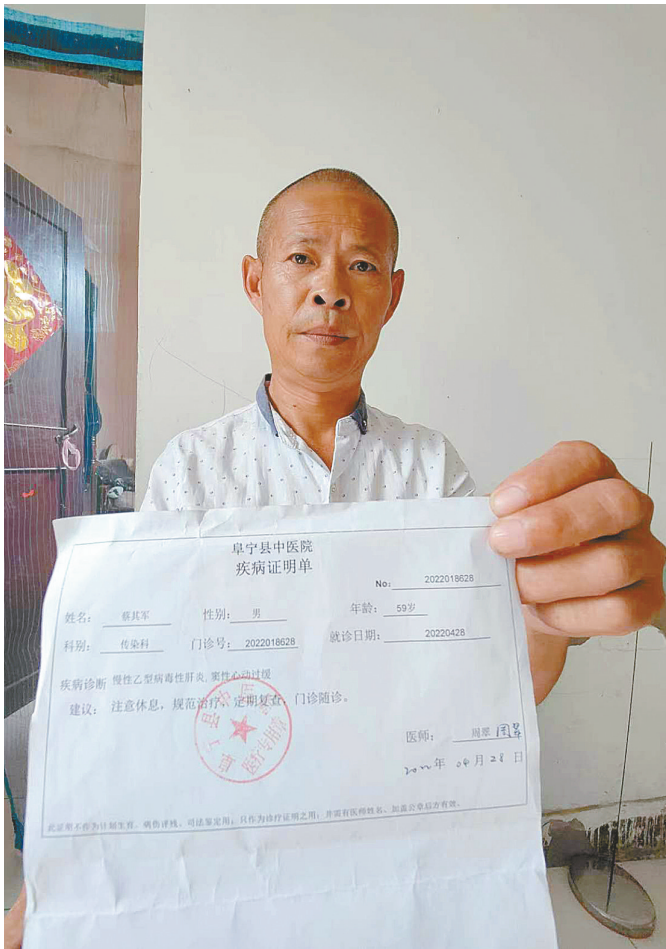 阜宁县中医院
疾病证明单
No: 2022018628
姓名: 蔡其军 性别: 男 年龄: 59岁
科别: 传染科 门诊号: 2022018628 就诊日期: 20220428
疾病诊断 慢性乙型病毒性肝炎,窦性心动过缓
建议: 注意休息，规范治疗、定期复查，门诊随诊。
医师: 周翠 周翠
2022年 04月 28日
此证明不作为计划生育、病伤评残、司法鉴定用；只作为诊疗证明之用；并需有医师姓名、加盖公章后方有效。